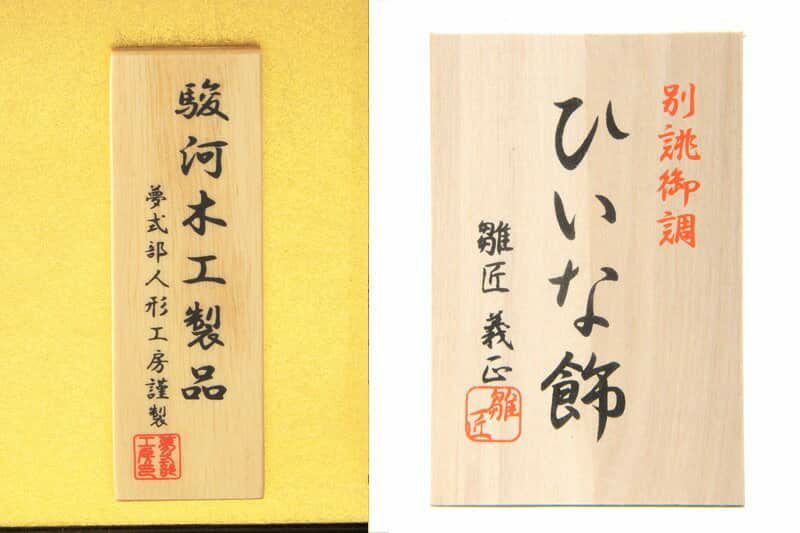 駿河木工製品
夢式部人形工房謹製
別誂御調
ひいな飾
雛匠 義正
雛匠